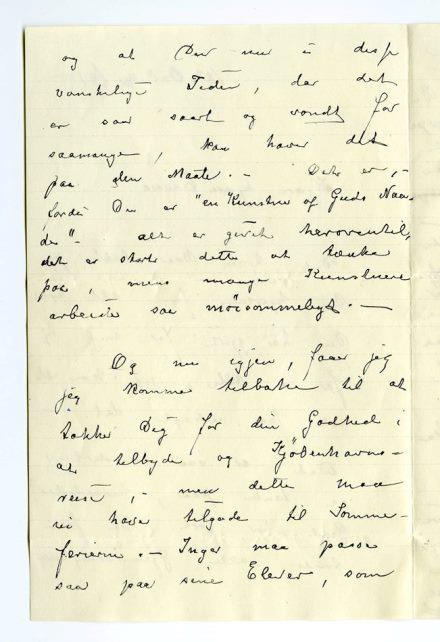 og at Den nu i disse
vanskelige Tider, der det
er saa saart og vondt for
saamange, kan have det
paa den Maate. — Det er, -
fordi Du er "en Kunstner af Guds Naa-
de" - alt er givet herovenfil,
det er store dette at tænke
paa, mens mange Kunstnere
arbeide saa møisommeligt. —
Og nu igjen, faar jeg
jeg komme tilbake til at
takke Dig for din Godhed i
at tilbyde og Kjøbenhavns-
reise, - men dette maa
vi have tilgode til Somme-
ferierne. — Inger maa passe
saa paa sine Elever, som